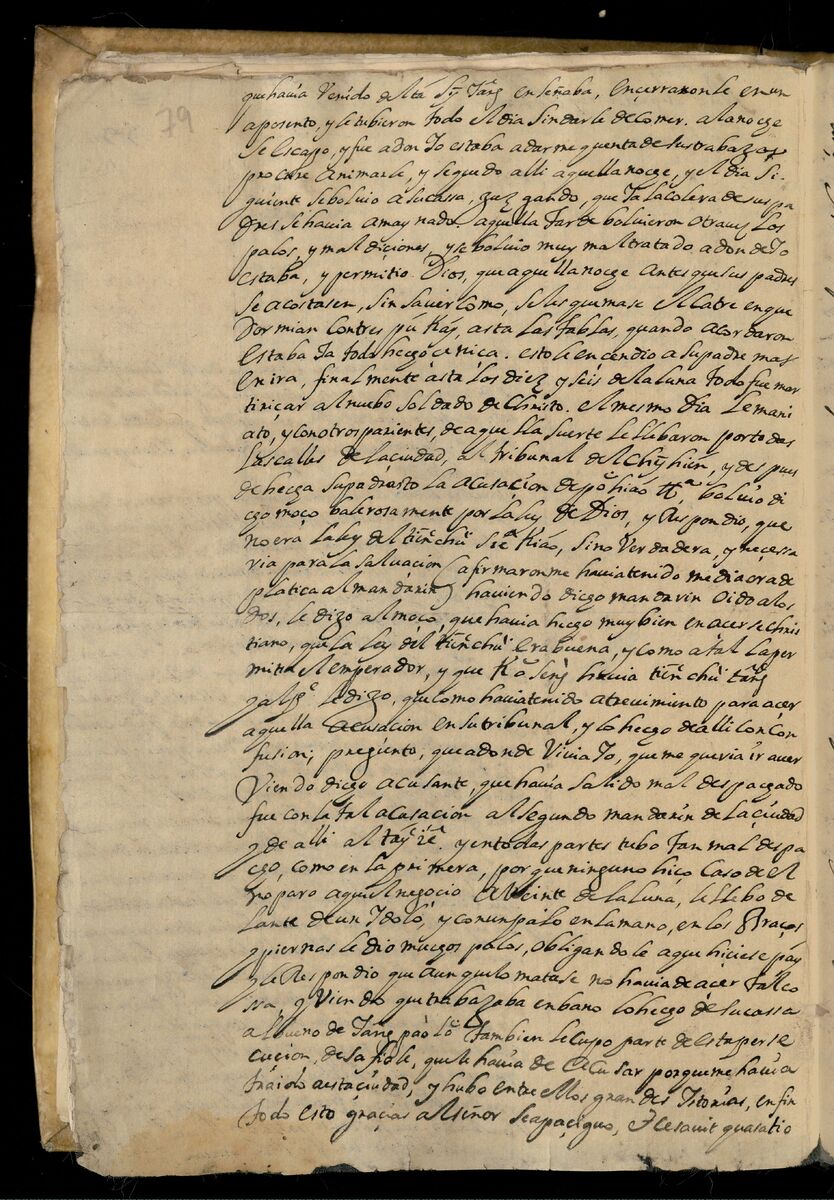 79
que havia Venido de el tā Sȳ Tang enseñaba, ençerraronle en un
aposento, y le tubieron todo el dia sin darle de comer. a la nocge
se escapo, y fue a don Jo estaba a darme quenta de sus trabazos
procure animarle, y se quedo alli aquella nocge, y el dia Si-
guiente se bolvio a su cassa, guzgando, que Ja la colera de sus pa
dres se havia amaynado. aquella Tarde bolvieron otra vez los
palos, y maldiciones, y se bolvio muy maltratado a don de Jo
estaba, y permitio Dios, que aquella nocge antes que sus padres
se acostasen, sin saver como, se les quemase el Catre en que
Dormian con tres pu Kay, asta las tablas, quando acordaron
estaba Ja todo hecgo ceniça. esto le encendio a su padre mas
en ira, finalmente asta los diez y seis de la luna todo fue mar
tiriçar al nuebo soldado de Christo. el mesmo Dia le mani
ató, y con otros parientes, de aquella suerte le llebaron por todas
las calles de la ciudad, al tribunal del chȳ hien, y despues
de hecga su padrasto la acusacion de po hiao, bolvió di
cgo moço balerosamente por la ley de Dios, y Respondio, que
no era la ley del tien chu sie Kiao, sino Verdadera, y neçessa
ria para la salvacion (afirmaronme havia tenido media ora de
platica al mandarin) haviendo dicgo mandarin oido a los
dos, le dizo al moço, que havia hecgo muy bien en acerse chris
tiano, que la ley del tien chu era buena, y como a tal la per
mitia el emperador, y que havia tien chu tang
y al le dizo, que como havia tenido atrevimiento para açer
aquella acusacion en su tribunal, y lo hecgo de alli con con
fusion; pregunto, que a donde Vivia Jo, que me queria ir a ver
Viendo dicgo acusante, que havia salido mal despacgado
fue con la tal acusacion al segundo mandarin de la ciudad
y de alli al y en todas partes tubo tan mal despa
cgo, como en la primera, por que ninguno hiço caso de el
no paro aqui el negocio a veinte de la luna, le llebo de
lante de un Idolo, y con un palo en la mano, en los Braços
y piernas le dio mucgos palos, obligandole a que hiciese pay
y le Respondio que aunque lo matase no havia de açer tal co
ssa, y Viendo que trabazaba en bano lo hecgo de su cassa
al bueno de Tang pao lo tambien le cupo parte de esta perse
cucion, de sa hole, que le havia de acusar porque me havia
traido a esta ciudad, y hubo entre ellos grandes Istorias, en fin
todo esto gracias al señor se apaçiguo, et cesavit quasatio